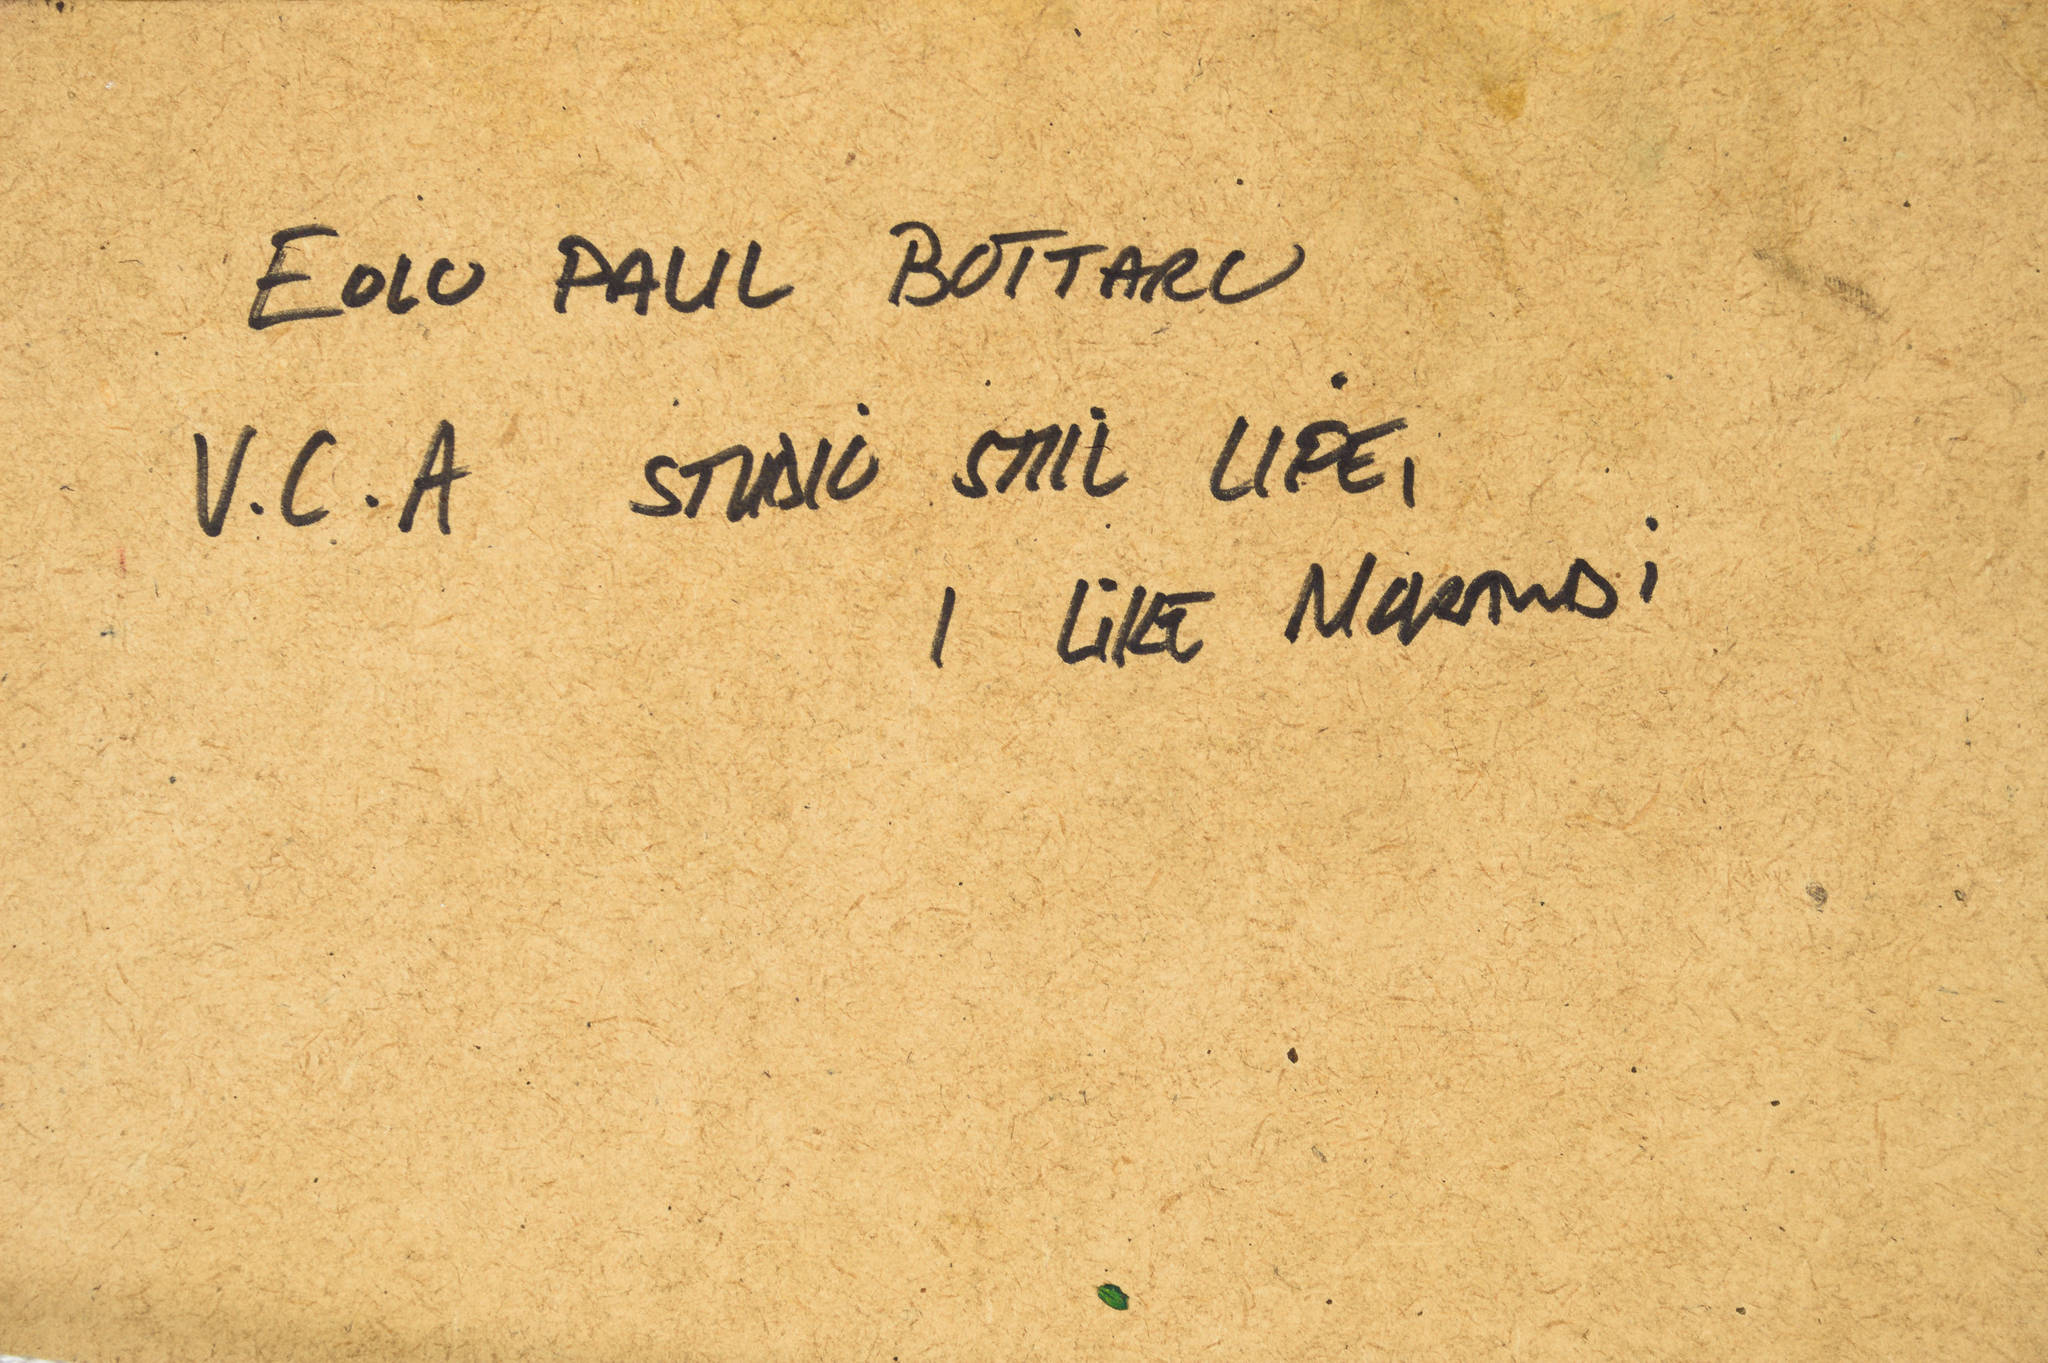 EOLO PAUL BOTTARO
V.C.A STUDIO STILL LIFE,
I LiKE MORANDi